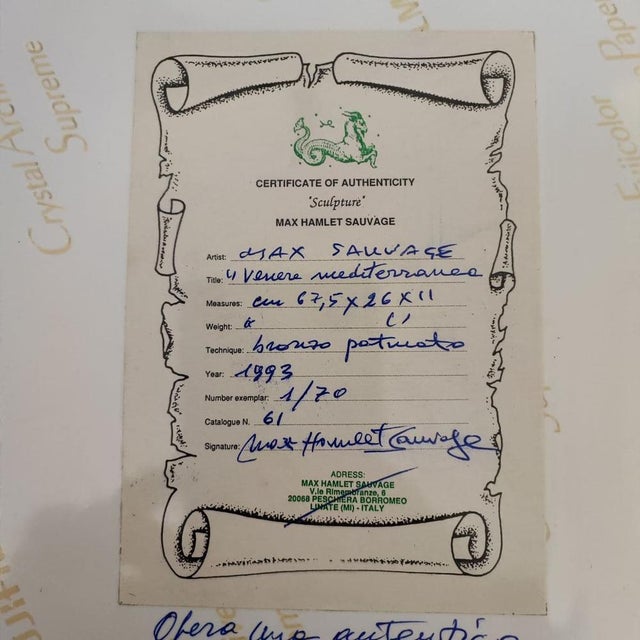 CERTIFICATE OF AUTHENTICITY
"Sculpture"
MAX HAMLET SAUVAGE
Artist: MAX SAUVAGE
Title: "Venere mediterranea
Measures: cm 67,5 x 26 x 11
Weight:
Technique: bronzo patinato
Year: 1993
Number exemplar: 1/70
Catalogue N. 61
Signature: Max Hamlet Sauvage
ADRESS:
MAX HAMLET SAUVAGE
V.le Rimembranze, 6
20068 PESCHIERA BORROMEO
LINATE (MI) - ITALY
Opera mia autentica
Crystal
Supreme
Fujicolor
Paper